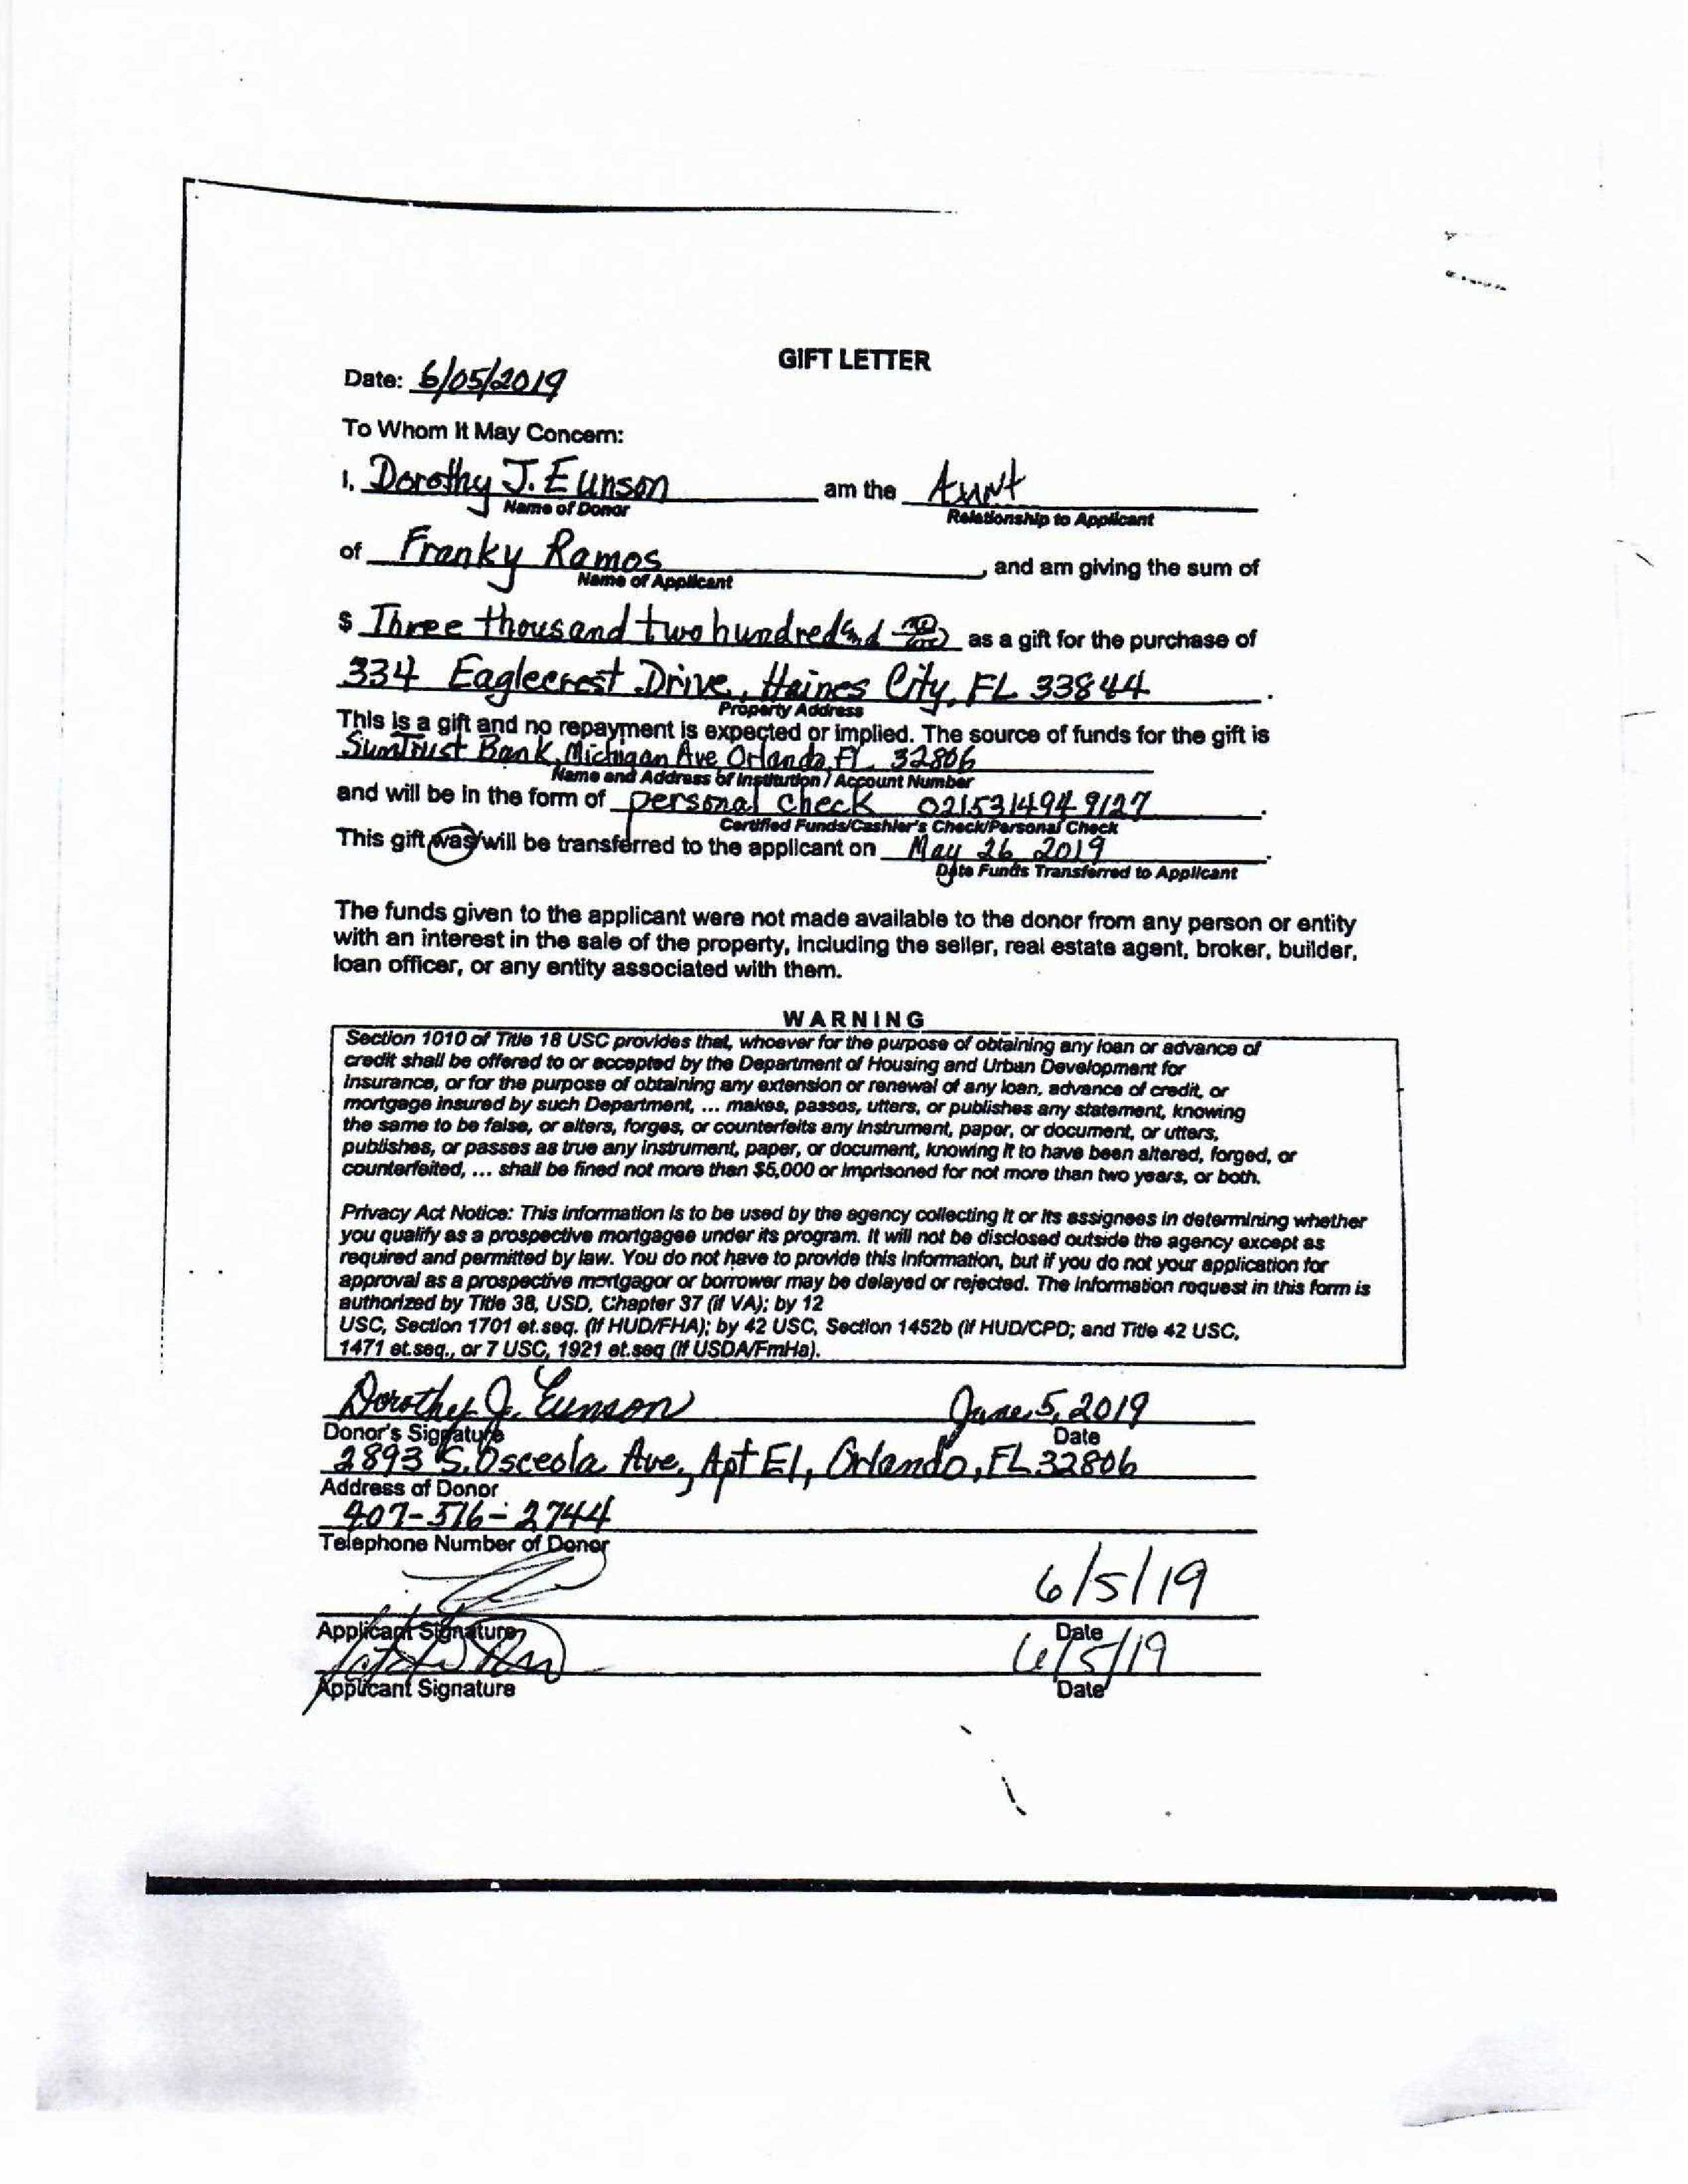 GIFT LETTER
Date: 6/05/2019
To Whom It May Concern:
I, Dorothy J. Eunson am the Aunt
Name of Donor Relationship to Applicant
of Franky Ramos, and am giving the sum of
Name of Applicant
$ Three thousand two hundred and as a gift for the purchase of
334 Eaglecrest Drive, Haines City, FL 33844.
Property Address
This is a gift and no repayment is expected or implied. The source of funds for the gift is
SunTrust Bank, Michigan Ave Orlando, FL 32806
Name and Address of Institution / Account Number
and will be in the form of personal check 021531494 9127.
Certified Funds/Cashier's Check/Personal Check
This gift was/will be transferred to the applicant on May 26 2019.
Date Funds Transferred to Applicant
The funds given to the applicant were not made available to the donor from any person or entity
with an interest in the sale of the property, including the seller, real estate agent, broker, builder,
loan officer, or any entity associated with them.
WARNING
Section 1010 of Title 18 USC provides that, whoever for the purpose of obtaining any loan or advance of
credit shall be offered to or accepted by the Department of Housing and Urban Development for
Insurance, or for the purpose of obtaining any extension or renewal of any loan, advance of credit, or
mortgage insured by such Department, ... makes, passes, utters, or publishes any statement, knowing
the same to be false, or alters, forges, or counterfeits any Instrument, paper, or document, or utters,
publishes, or passes as true any instrument, paper, or document, knowing it to have been altered, forged, or
counterfeited, ... shall be fined not more than $5,000 or Imprisoned for not more than two years, or both.
Privacy Act Notice: This information is to be used by the agency collecting it or its assignees in determining whether
you qualify as a prospective mortgagee under its program. It will not be disclosed outside the agency except as
required and permitted by law. You do not have to provide this information, but if you do not your application for
approval as a prospective mortgagor or borrower may be delayed or rejected. The Information request in this form is
authorized by Title 38, USD, Chapter 37 (if VA); by 12
USC, Section 1701 et.seq. (if HUD/FHA); by 42 USC, Section 1452b (if HUD/CPD; and Title 42 USC,
1471 et.seq., or 7 USC, 1921 et.seq (if USDA/FmHa).
Dorothy J. Eunson June 5, 2019
Donor's Signature Date
2893 S. Osceola Ave, Apt E1, Orlando, FL 32806
Address of Donor
407-516-2744
Telephone Number of Donor
6/5/19
Applicant Signature Date
6/5/19
Applicant Signature Date